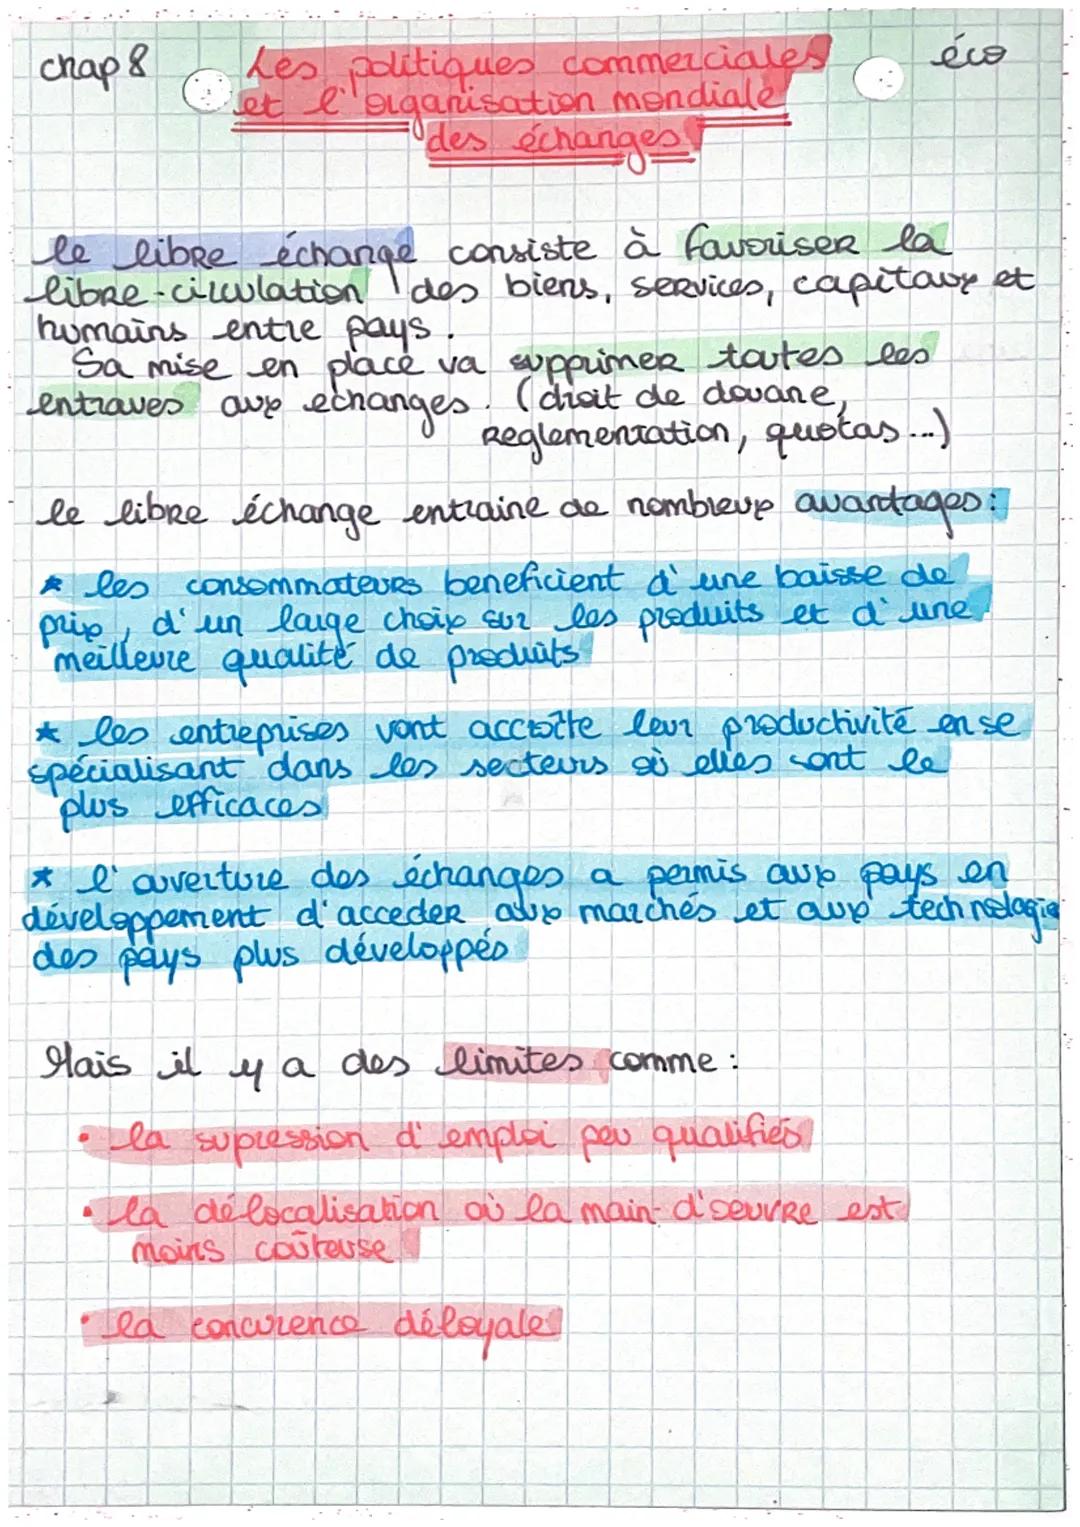 chap 8
éco
Les politiques commerciales
et l'organisation mondiale
des échanges
le libre échange consiste à favoriser la
libre-circulation des biens, services, capitaux et
humains entre pays.
Sa mise en place va supprimer toutes les
entraves aux echanges. (droit de douane,
reglementation, quotas...)
le libre échange entraine de nombreux avantages:
* les consommateurs beneficient d'une baisse de
prix, d'un large choix sur les produits et d'une
meilleure qualité de produits
* les entreprises vont accroître leur productivité en se
spécialisant dans les secteurs où elles sont le
plus efficaces
* l'ouverture des échanges a permis aux pays en
développement d'acceder aux marchés et aux technologie
des pays plus développés
Mais il y a des limites comme :
• la supression d'emploi peu qualifiés
• la délocalisation où la main-d'oeuvre est
moins coûteuse
• la concurence déloyale